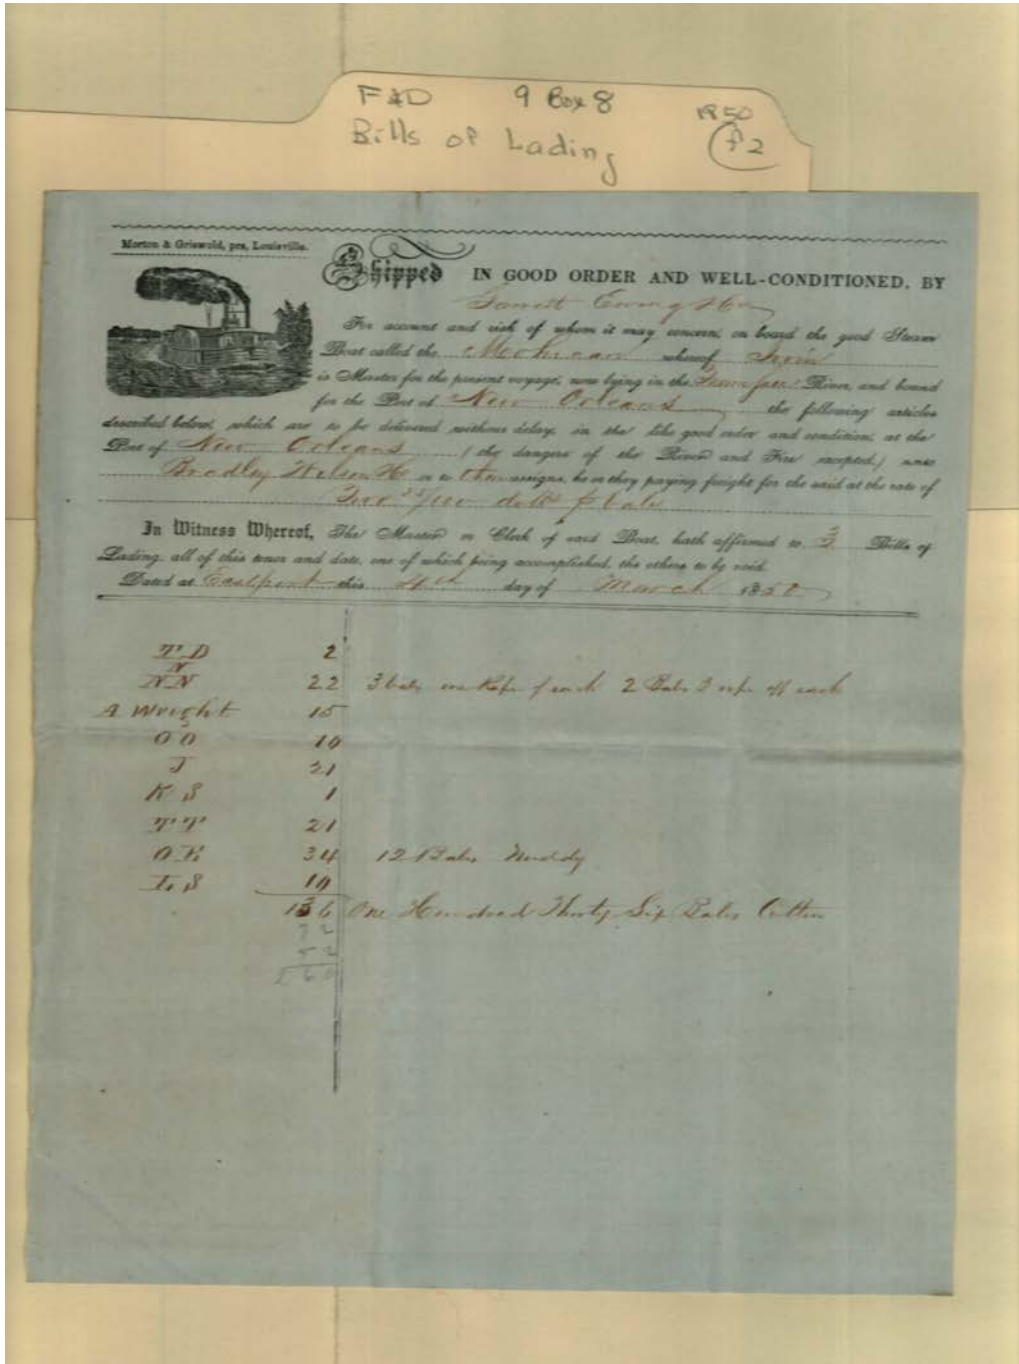 F&D 9 Box 8 1850
Bills of Lading f2
Morton & Griswold, prs, Louisville.
Shipped IN GOOD ORDER AND WELL-CONDITIONED, BY
Garrett Ewing & Co
For account and risk of whom it may concern, on board the good Steam
Boat called the Mohican whereof
is Master for the present voyage, now lying in the Tennessee River, and bound
for the Port of New Orleans the following articles
described below, which are to be delivered without delay, in the like good order and condition, at the
Port of New Orleans (the dangers of the River and Fire excepted,) unto
Bradley Wilson & Co or to their assigns, he or they paying freight for the said at the rate of
Two /100 dolls bale
In Witness Whereof, The Master or Clerk of said Boat, hath affirmed to 3 Bills of
Lading, all of this tenor and date, one of which being accomplished, the others to be void.
Dated at Eastport this 4th day of March 1850
T D 2
N
N N 22 3 bales one Rope off each 2 Bales 2 off each
A Wright 15
O O 10
J 21
K S 1
T T 21
O K 34 12 Bales Muddy
L S 10
136 One Hundred Thirty Six Bales Cotton